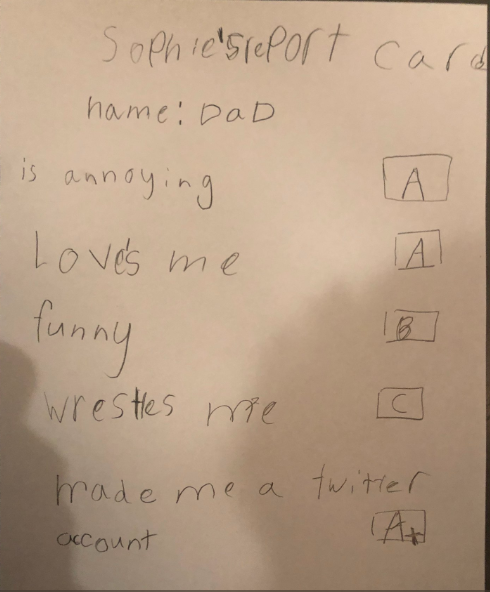 Sophie's report Card
name: DaD
is annoying A
Loves me A
funny B
wrestles me C
made me a twitter
account A+